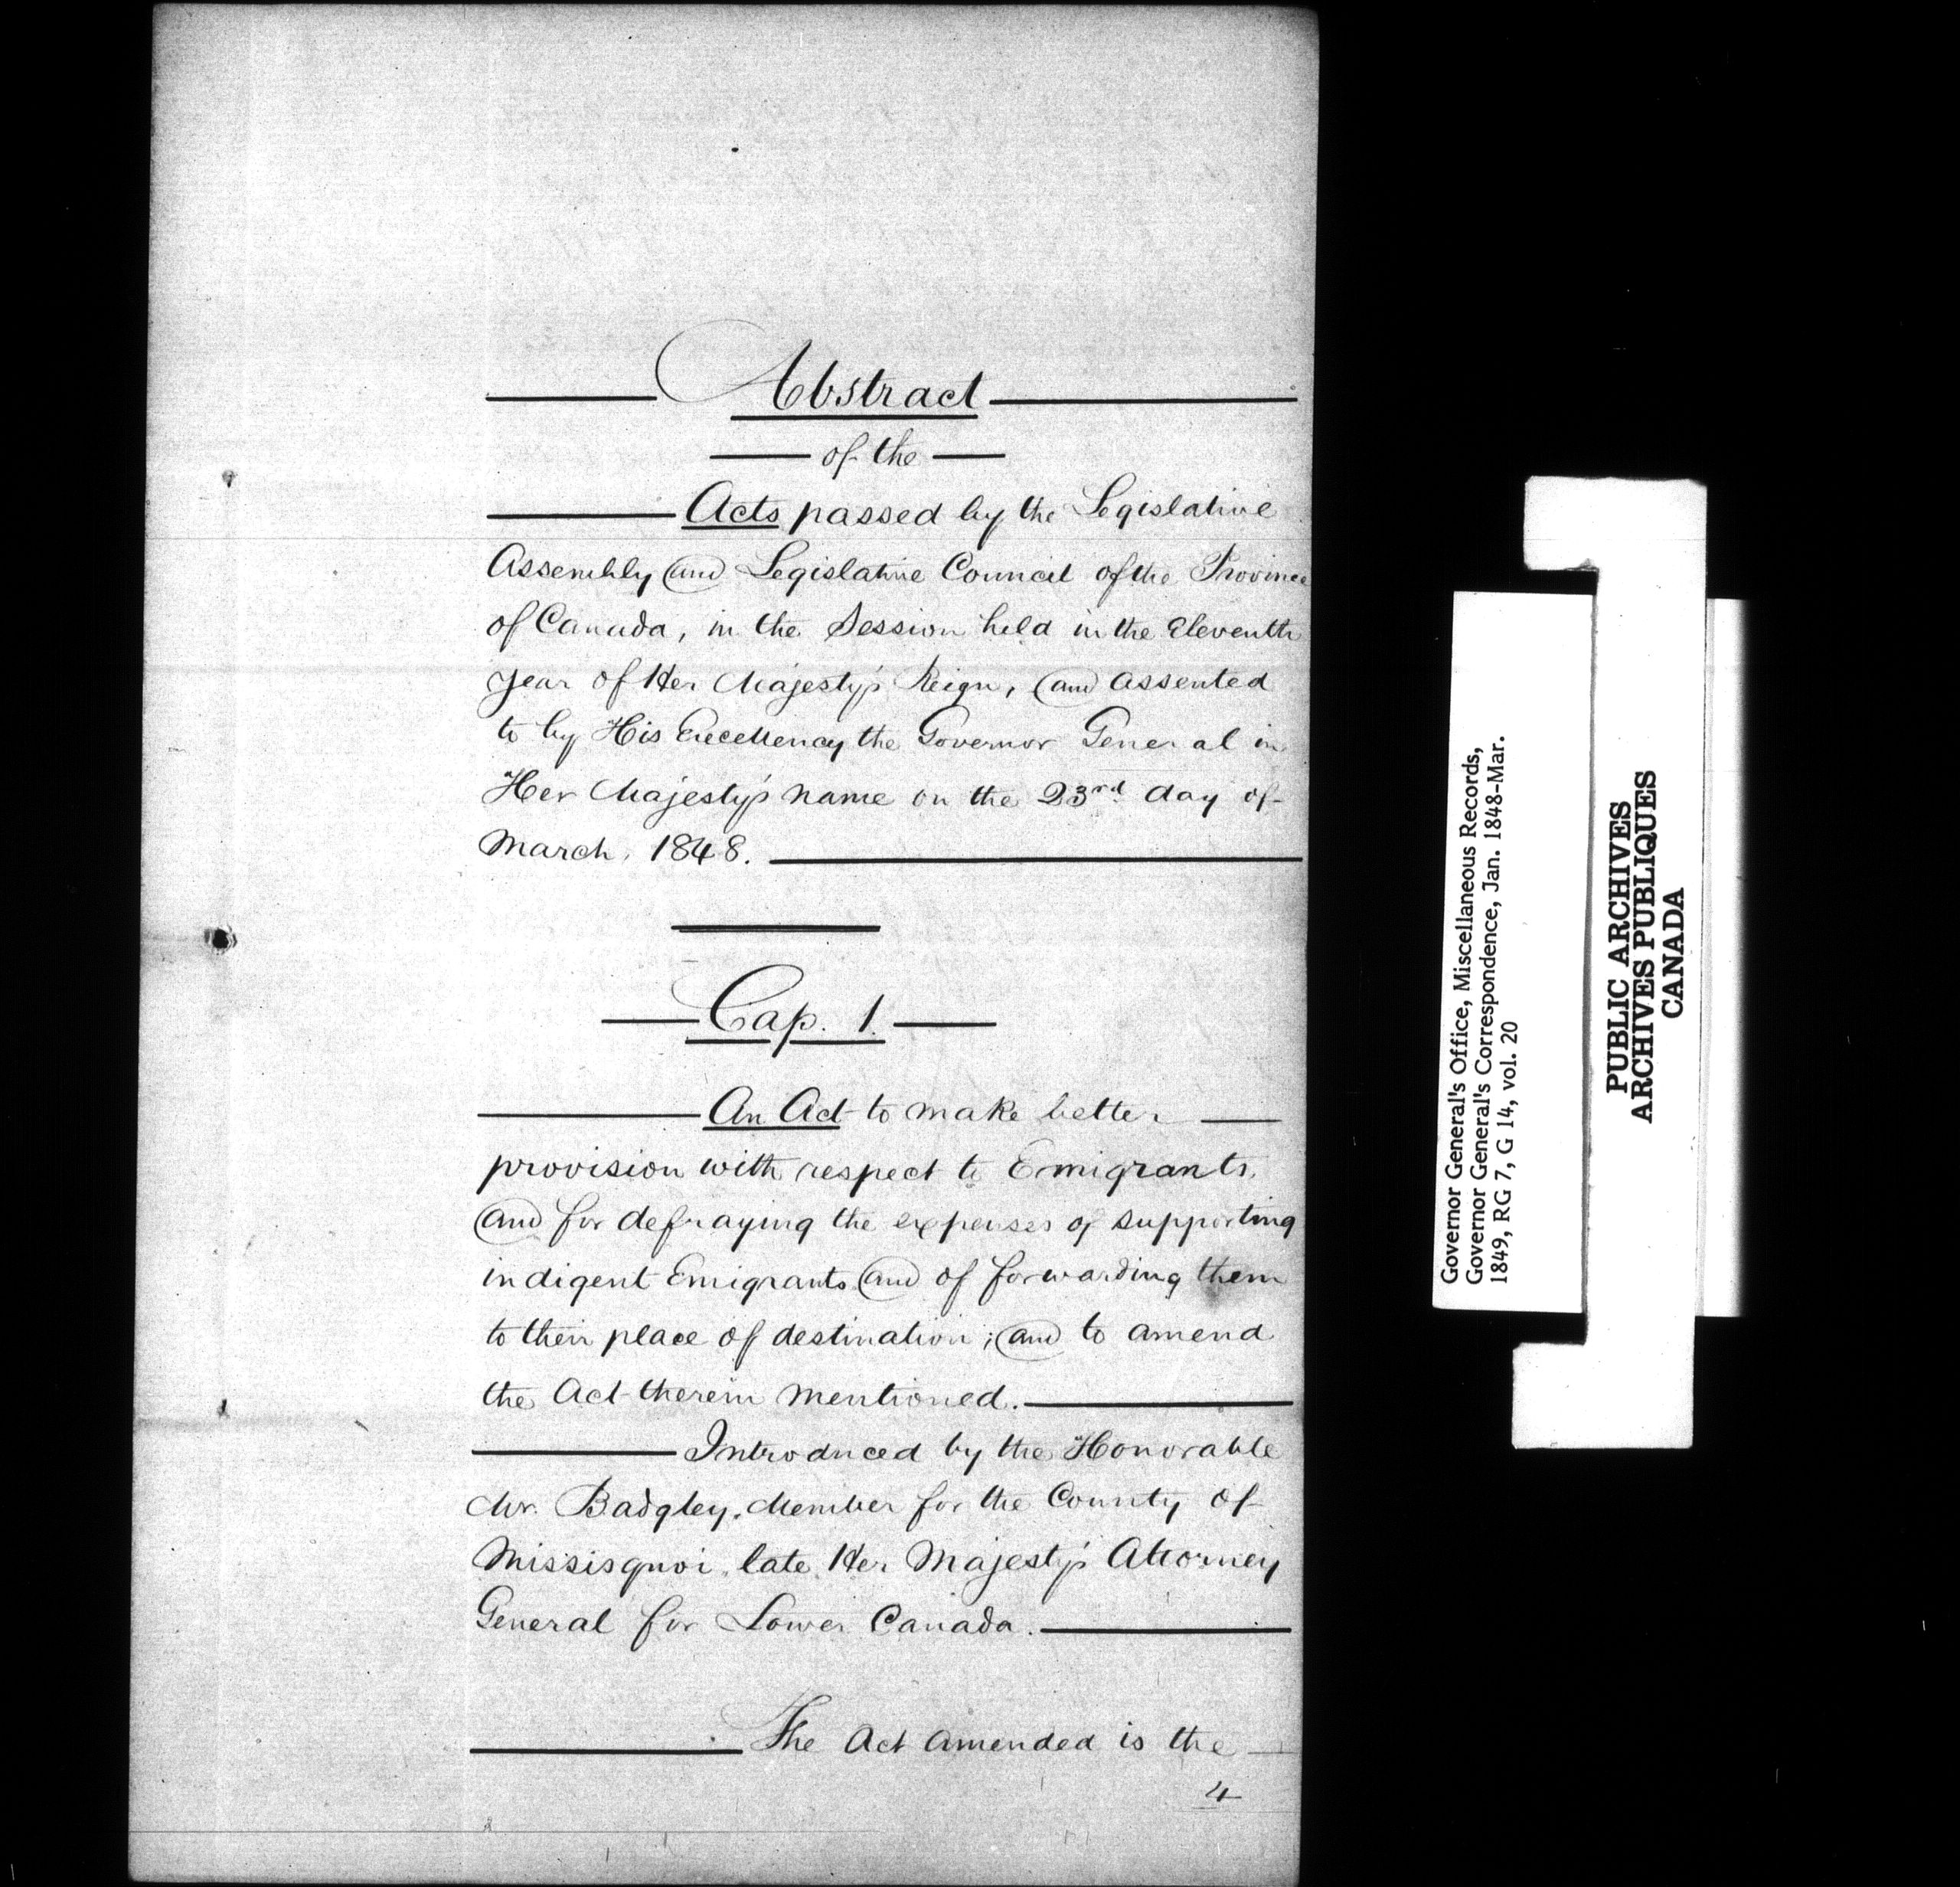 Abstract
of the
Acts passed by the Legislative
Assembly and Legislative Council of the Province
of Canada, in the Session held in the Eleventh
year of Her Majesty's Reign, and assented
to by His Excellency the Governor General in
Her Majesty's name on the 23rd day of
March, 1848.
Cap. 1.
An Act to make better
provision with respect to Emigrants,
and for defraying the expenses of supporting
indigent Emigrants and of forwarding them
to their place of destination; and to amend
the Act therein mentioned.
Introduced by the Honorable
Mr. Badgley, Member for the County of
Missisquoi, late Her Majesty's Attorney
General for Lower Canada.
The Act amended is the
4
Governor General's Office, Miscellaneous Records,
Governor General's Correspondence, Jan. 1848-Mar.
1849, RG 7, G 14, vol. 20
PUBLIC ARCHIVES
ARCHIVES PUBLIQUES
CANADA